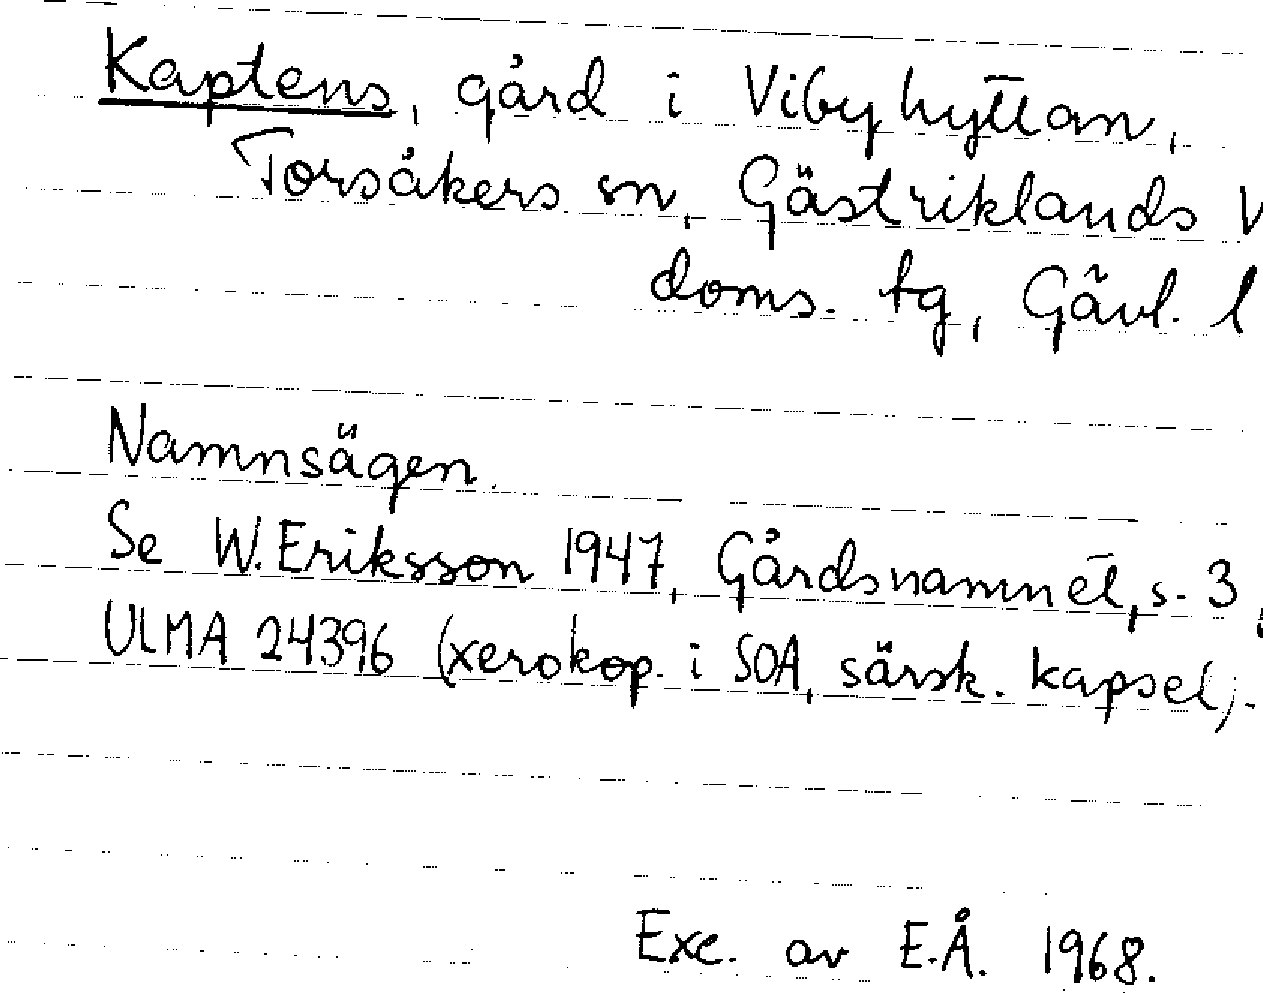 Kaptens, gård i Vibyhyttan,
Torsåkers sn, Gästriklands V
doms. tg, Gävl. l
Namnsägen.
Se W. Eriksson 1947, Gårdsnamnet, s. 3,
ULMA 24396 (xerokop. i SOA, särsk. kapsel).
Exc. av E.Å. 1968.